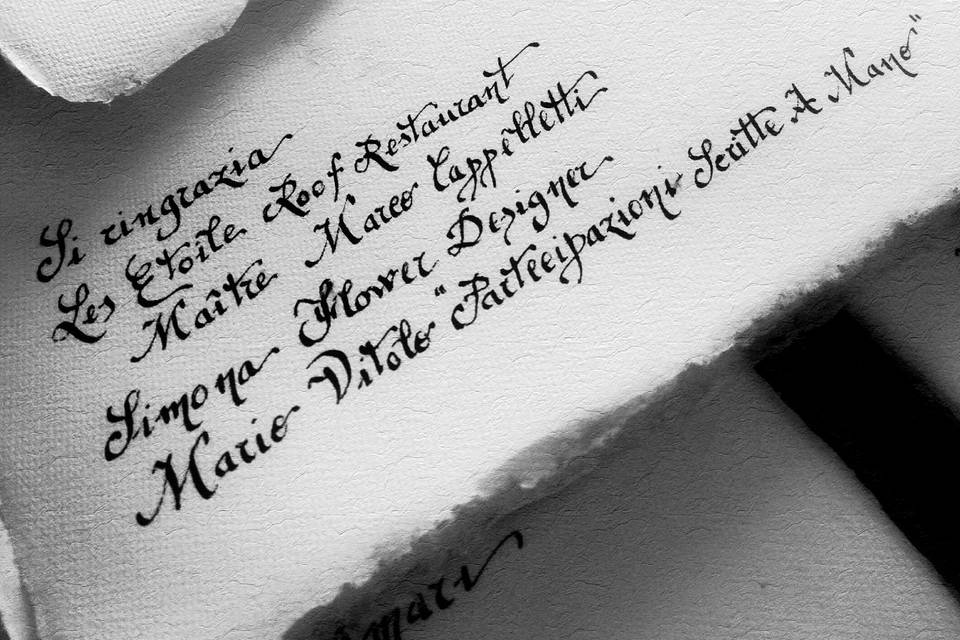 Si ringrazia
Les Etoile Roof Restaurant
Maître Marco Cappelletti
Simona Flower Designer
Mario Vitolo "Partecipazioni Scritte A Mano"